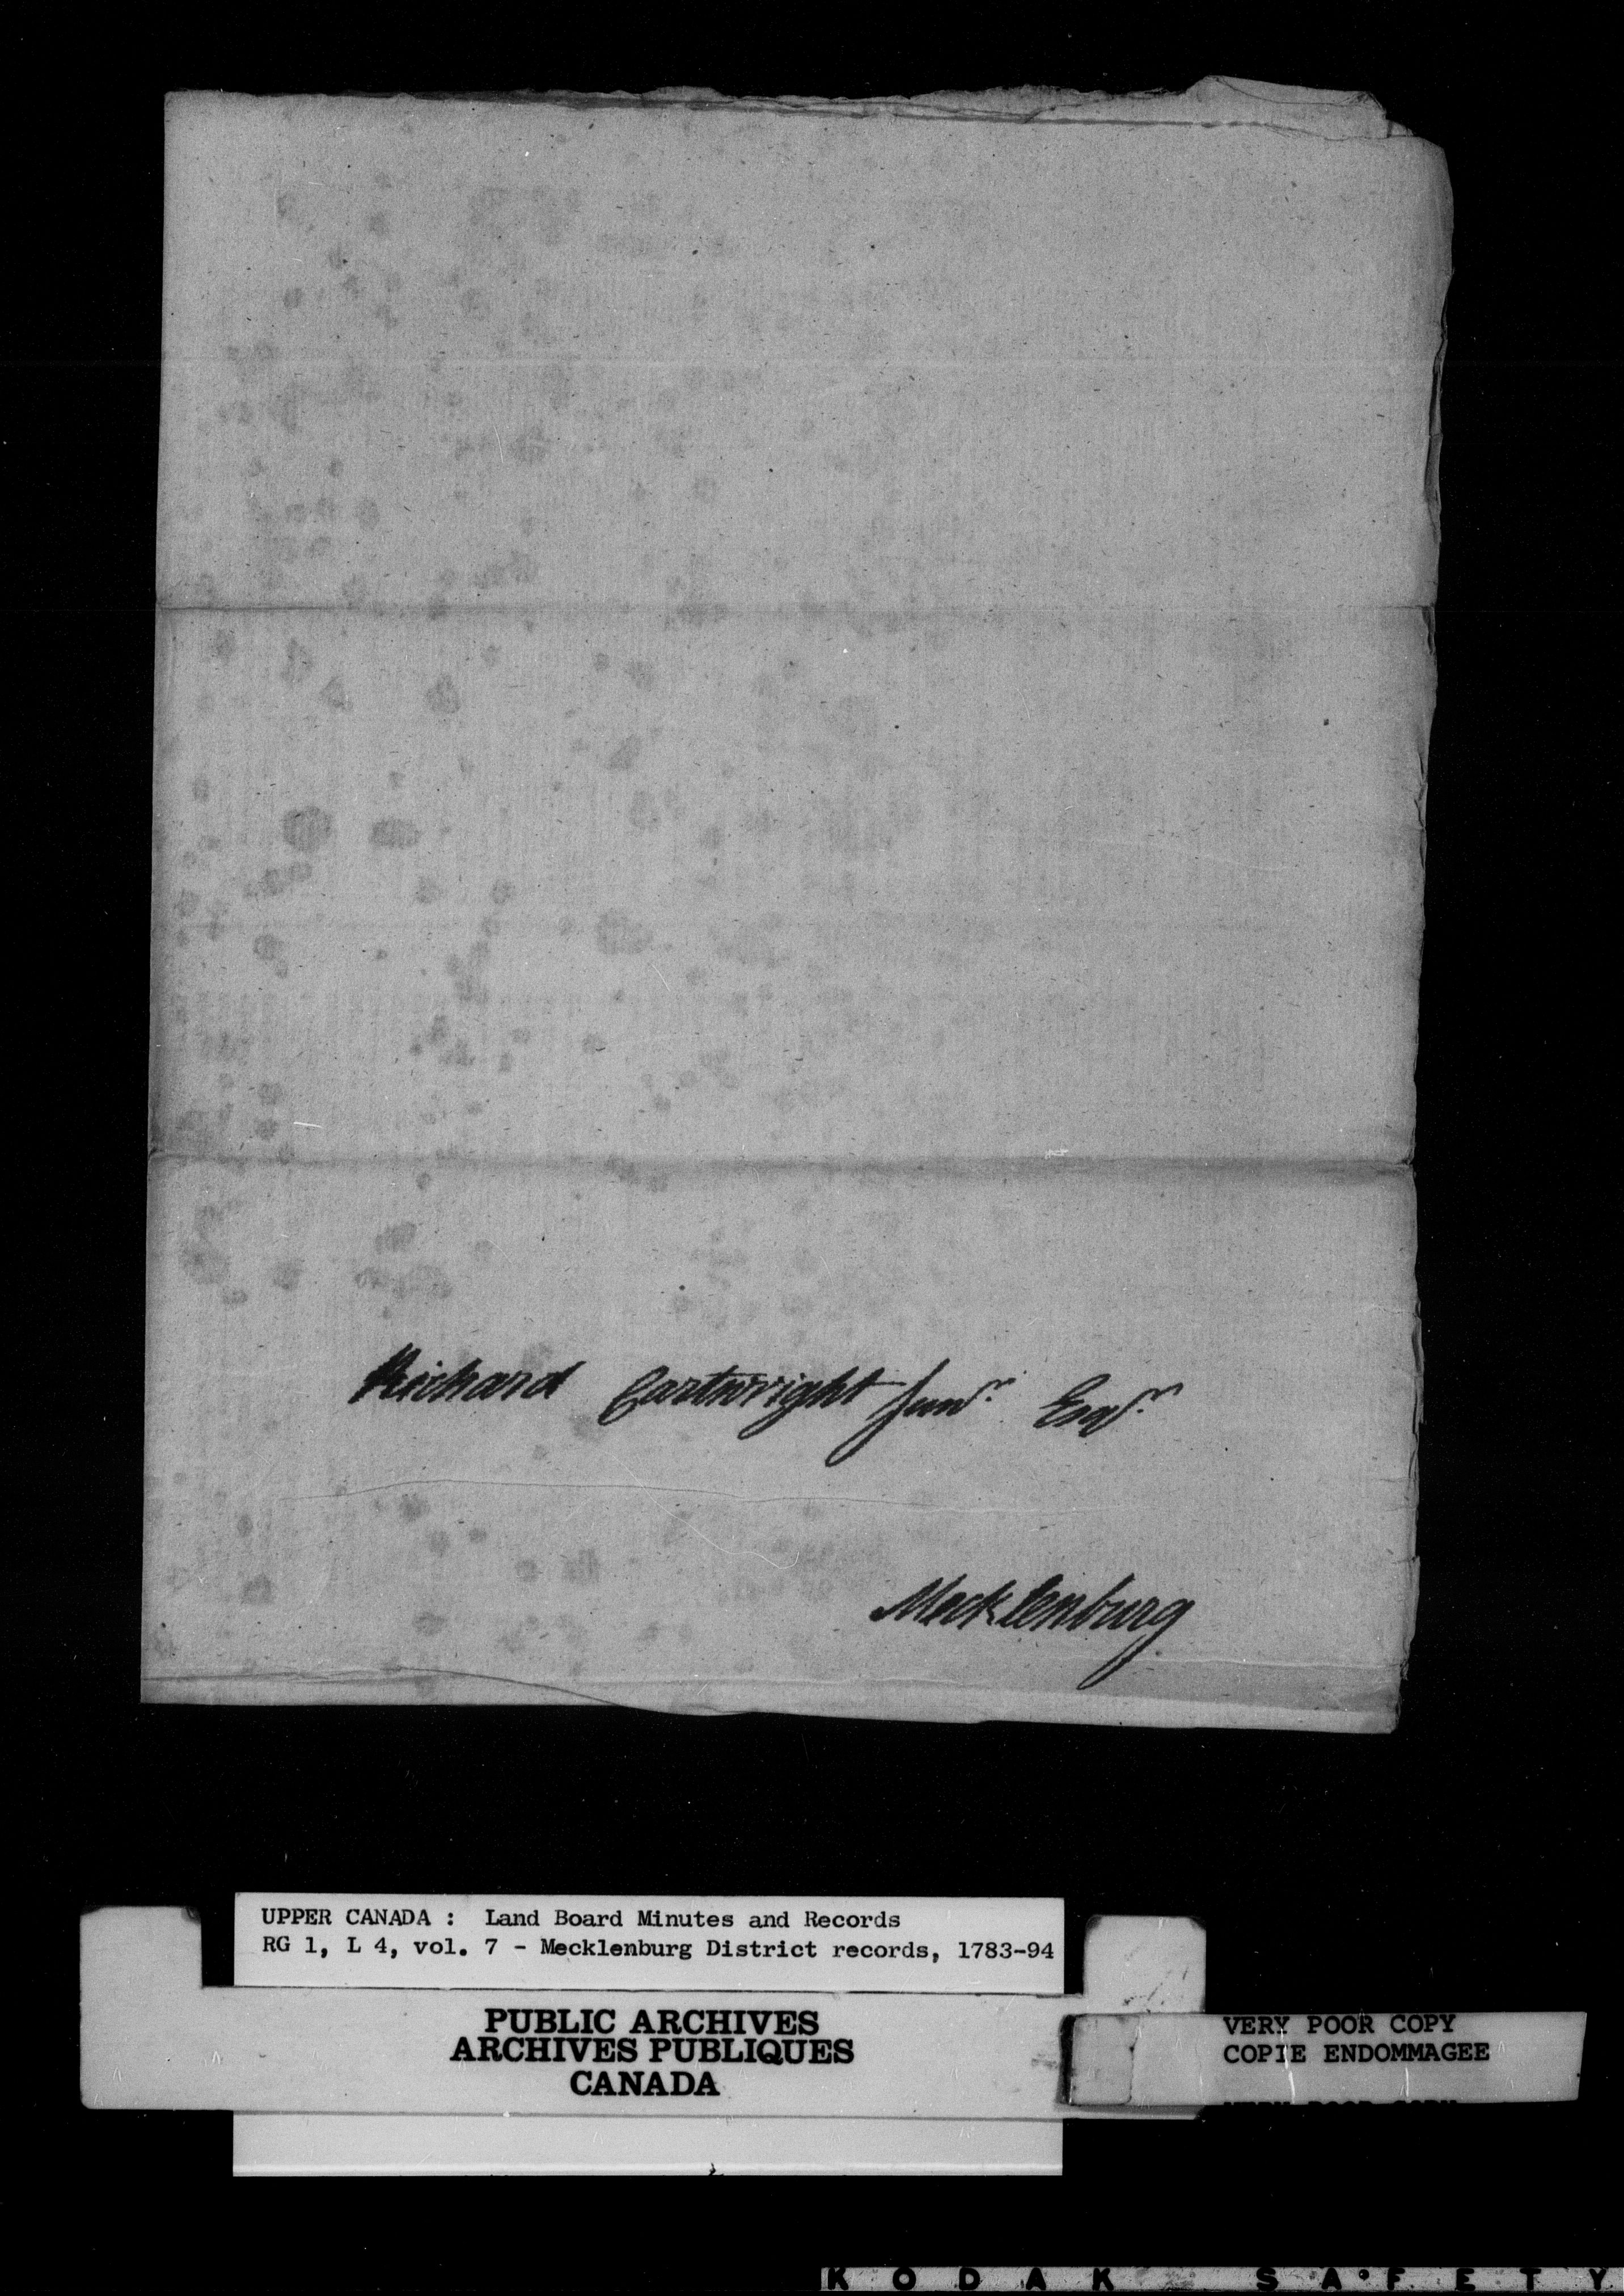 Richard Cartwright Junr. Esqr.
Mecklenburg
UPPER CANADA : Land Board Minutes and Records
RG 1, L 4, vol. 7 - Mecklenburg District records, 1783-94
PUBLIC ARCHIVES
ARCHIVES PUBLIQUES
CANADA
VERY POOR COPY
COPIE ENDOMMAGEE
VERY POOR COPY
KODAK SAFETY